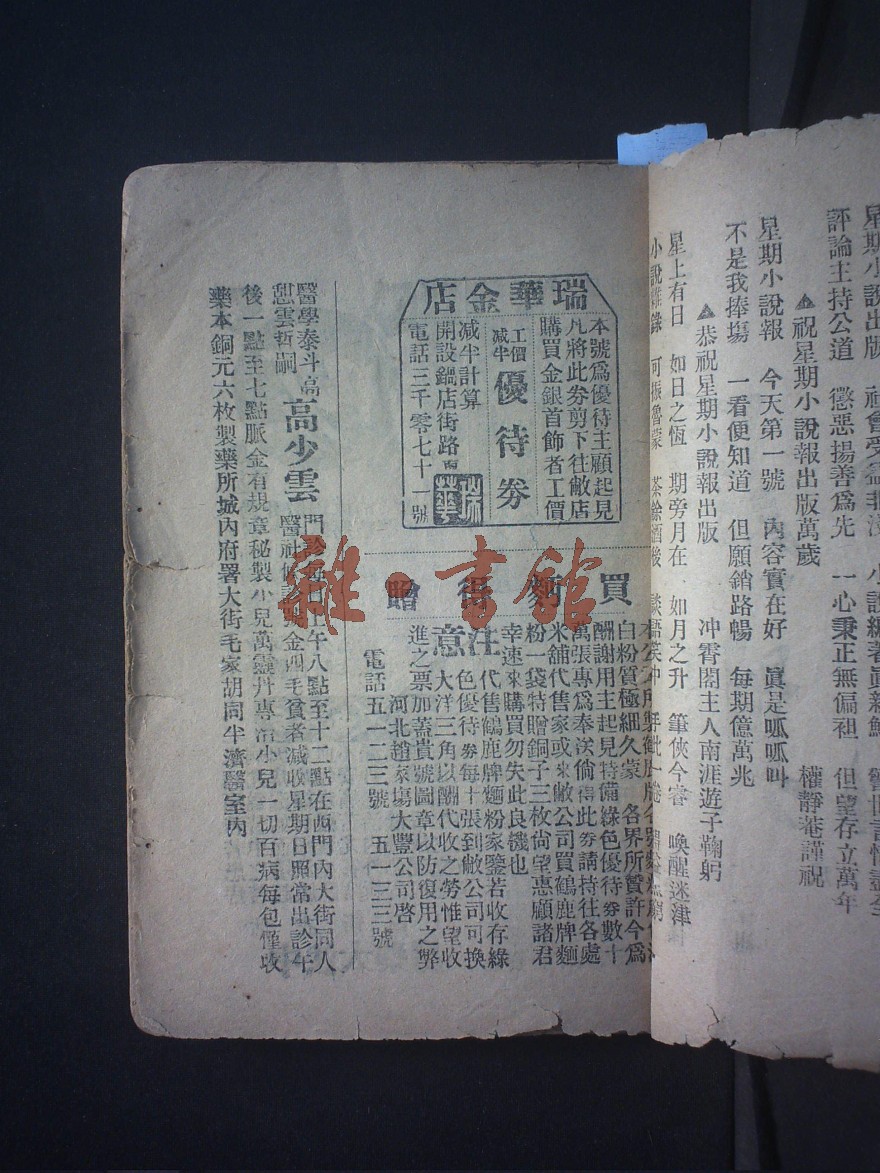 星期小說出版
評論主持公道 懲惡揚善爲先 一心秉正無偏袒 但望存立萬年
▲祝星期小說報出版萬歲 權靜菴謹祝
星期小說報 今天第一號 內容實在好 眞是呱呱叫
不是我捧場 一看便知道 但願銷路暢 每期億萬兆
▲恭祝星期小說報出版 冲霄閣主人南涯遊子鞠躬
星上有日 如日之恆 期旁月在 如月之升 筆俠今睿 喚醒迷津
瑞華金店
本號爲優待主顧起見
凡將此劵剪下往敝店
購買金銀首飾者工價
工價减半
優待劵
减半計算
開設鍋店街路
電話三千零七十一號
瑞華
買 得贈
白粉質極細久蒙 各界所贊許今爲
酬謝用主起見特備綠色優待劵數十
萬張專爲奉送倘得此劵請持往各處
米舖代售家或來敝公司買鶴鹿牌麵
粉一袋特贈銅子三枚尙望惠顧諸君
幸速來購買勿失此良機也
注意
代售鶴鹿牌麵粉家鑒若收存綠
色優待劵每十張到敝公司可換
大洋三角以酬代收之勞惟望收
進之票加蓋貴號圖章以防復用之弊
河北趙家塲大豐公司啓
電話五一二三號 五一三三號
醫學泰斗高
恕雲哲嗣
高少雲
門診每日上午八點至十二點在西門內大街同人
醫社 金四毛貧者減收星期日照常出診午
後一點至七點脈金有規章秘製小兒萬靈丹專治小兒一切百病每包僅收
藥本銅元六枚製藥所城內府署大街毛家胡同半濟醫室內
雜·書館